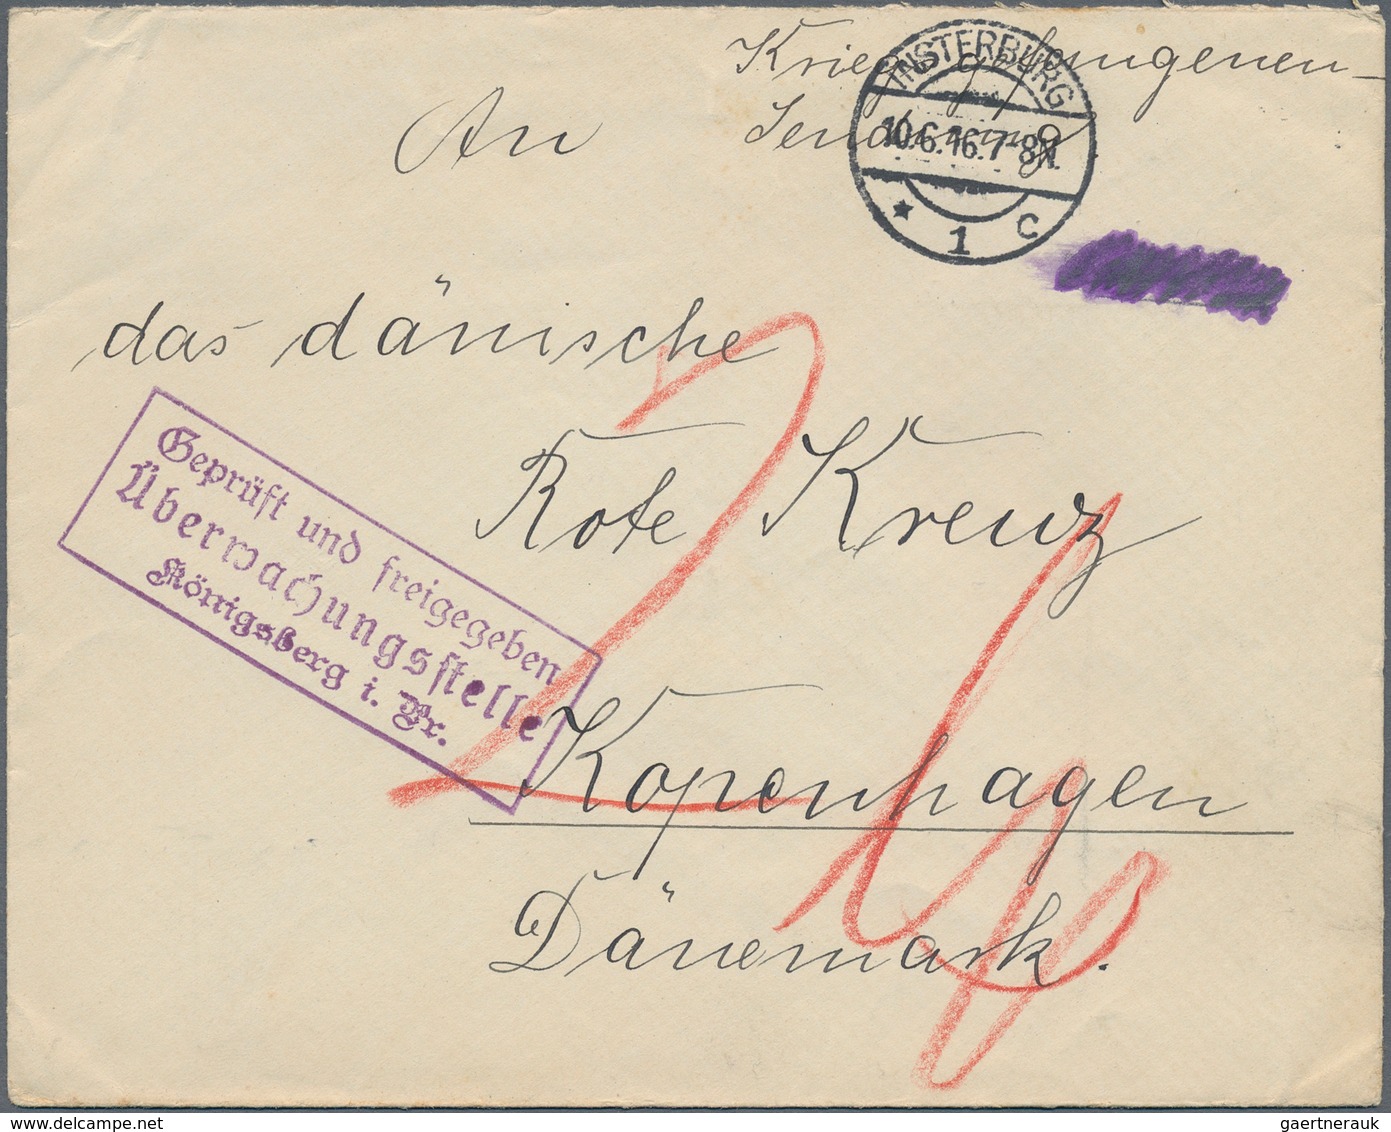 Kriegsgefangenen-
Sendung
INSTERBURG
10.6.16.7-8N.
* 1 c
An
das dänische
Rote Kreuz
Kopenhagen
Dänemark.
Geprüft und freigegeben
Überwachungsstelle
Königsberg i. Pr.
gaertnerauk